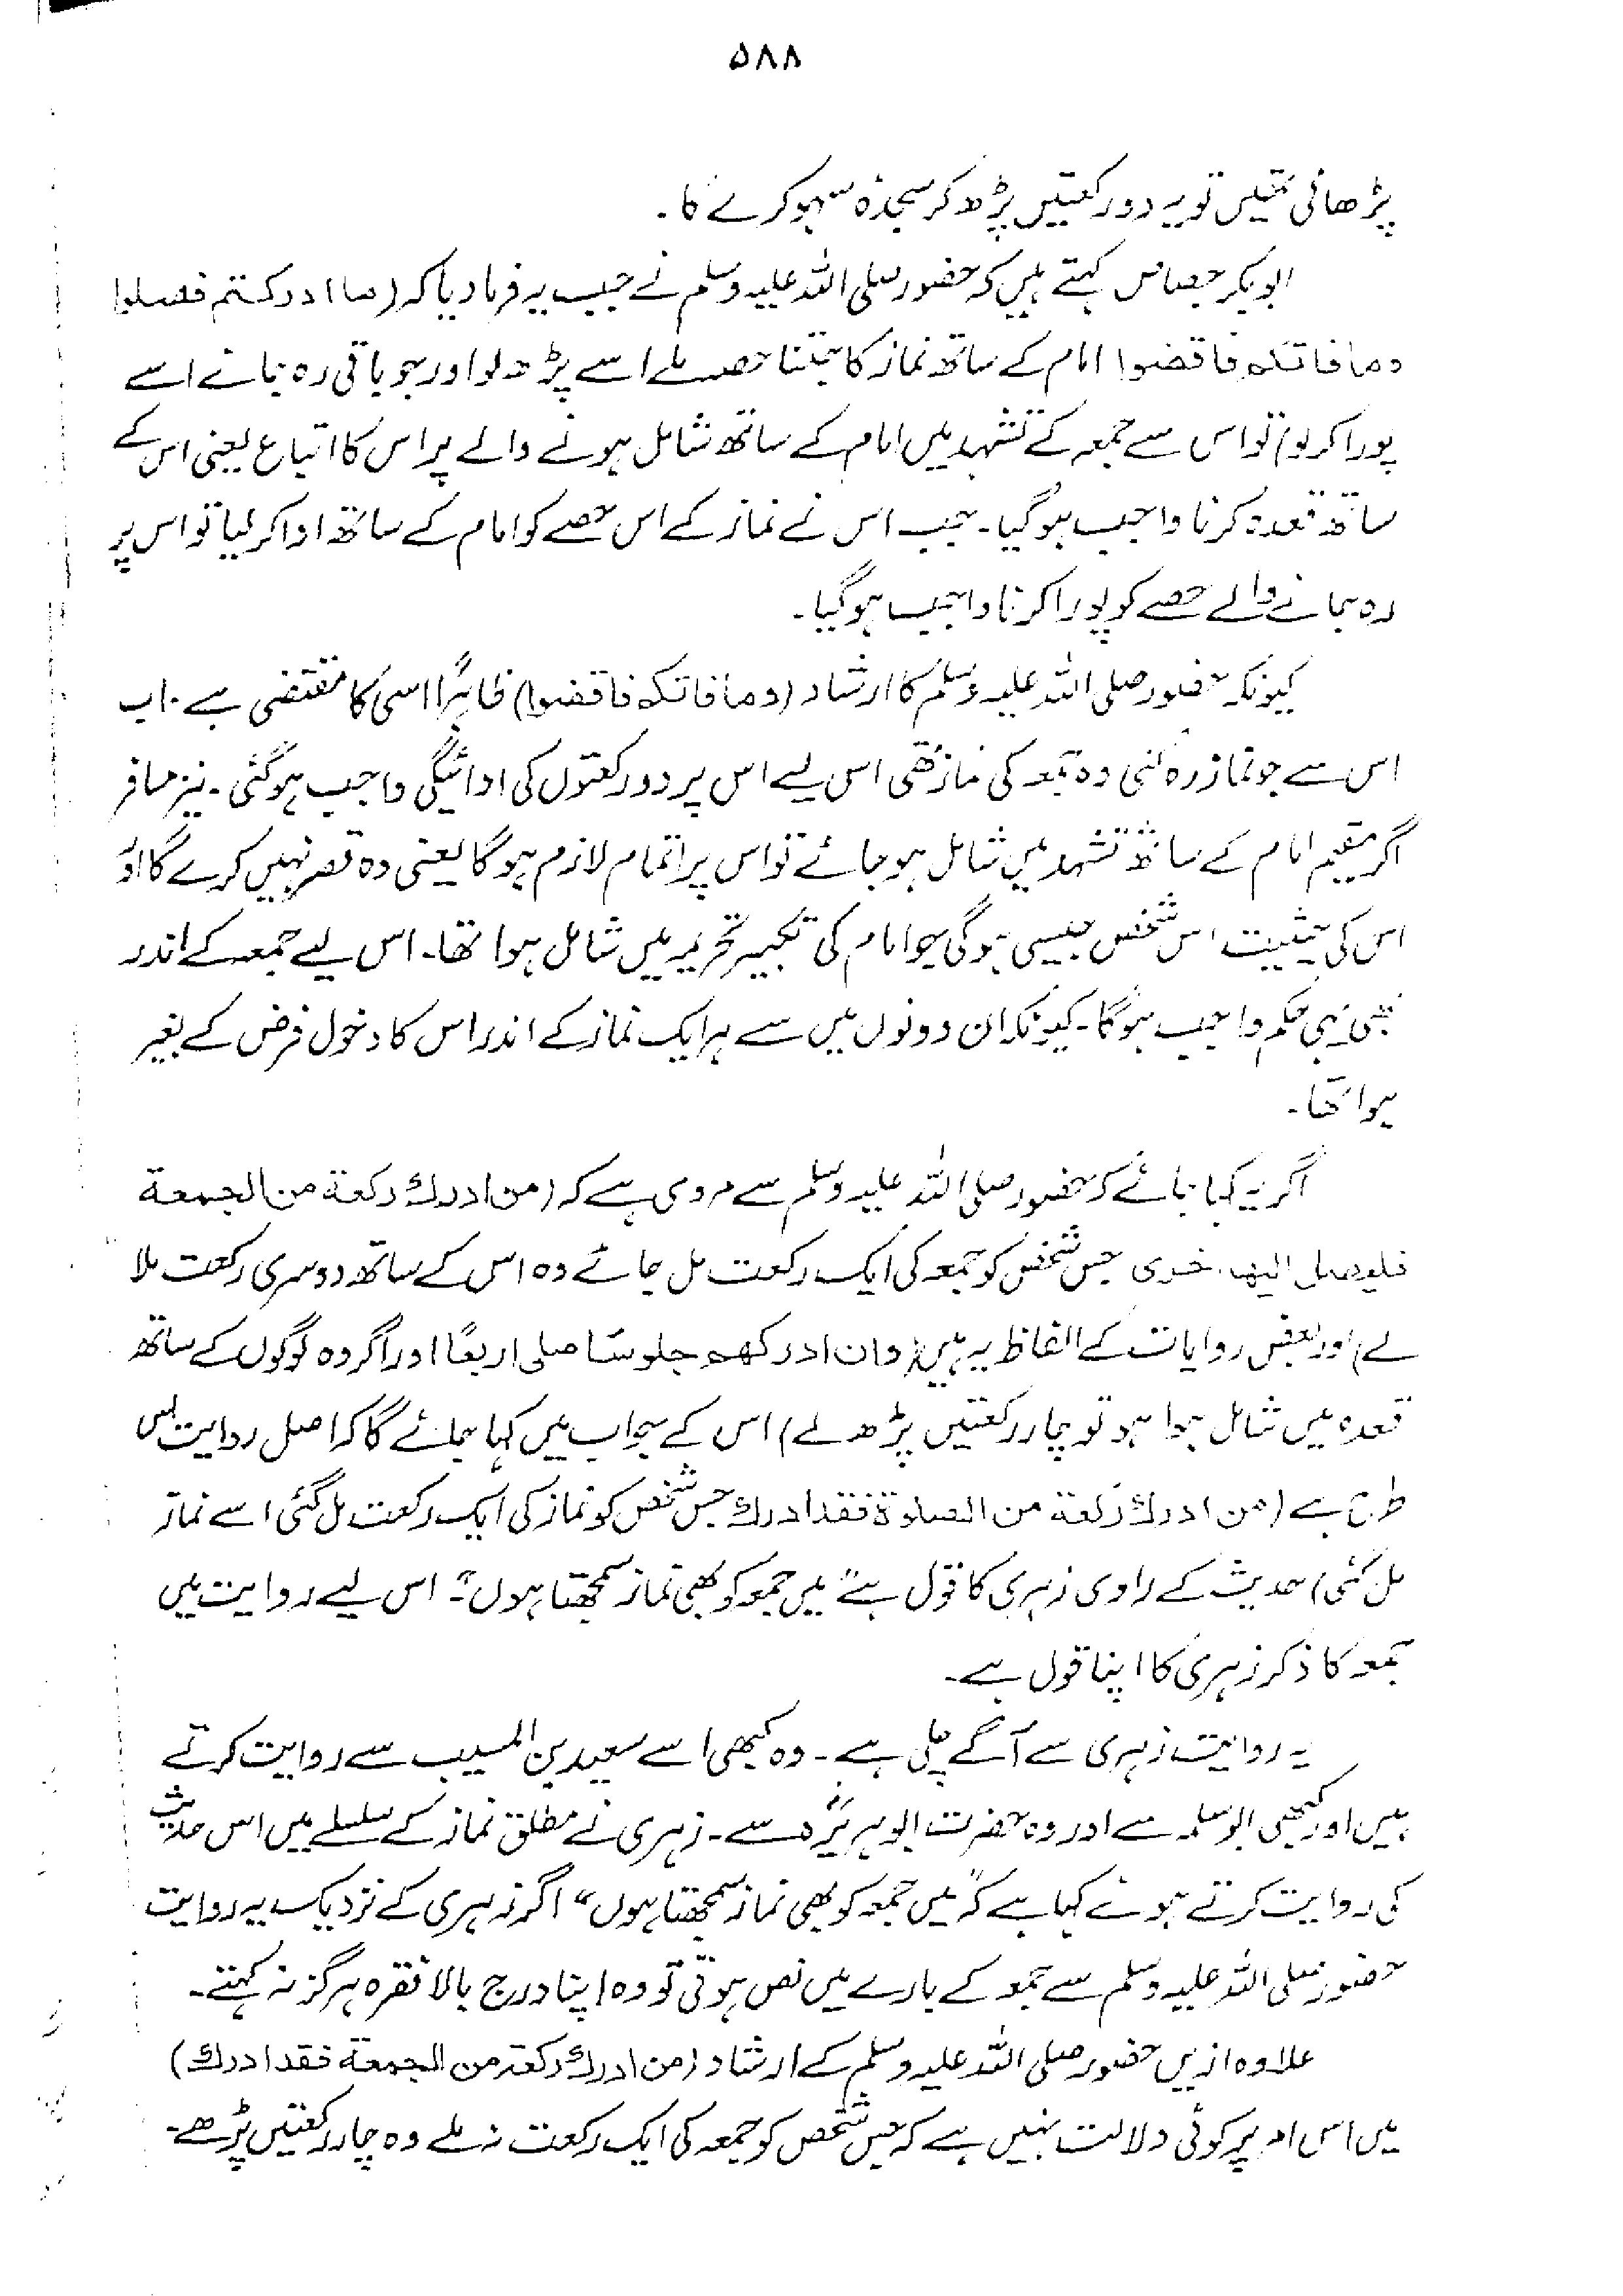 ۵۸۸
پڑھائی تھیں تو یہ دو رکعتیں پڑھ کر سجدہ سہو کرے گا۔
ابوبکر جصاص کہتے ہیں کہ حضور صلی اللہ علیہ وسلم نے جب یہ فرما دیا کہ (ما ادرکتم فصلوا
وما فاتکم فاقضوا امام کے ساتھ نماز کا جتنا حصہ ملے اسے پڑھ لو اور جو باقی رہ جائے اسے
پورا کر لو) تو اس سے جمعہ کے تشہد میں امام کے ساتھ شامل ہونے والے پر اس کا اتباع یعنی اس کے
ساتھ قعدہ کرنا واجب ہو گیا۔ جب اس نے نماز کے اس حصے کو امام کے ساتھ ادا کر لیا تو اس پر
رہ جانے والے حصے کو پورا کرنا واجب ہو گیا۔
کیونکہ حضور صلی اللہ علیہ وسلم کا ارشاد (وما فاتکم فاقضوا) ظاہراً اسی کا مقتضی ہے۔ اب
اس سے جو نماز رہ گئی وہ جمعہ کی نماز تھی اس لیے اس پر دو رکعتوں کی ادائیگی واجب ہو گئی۔ نیز مسافر
اگر مقیم امام کے ساتھ تشہد میں شامل ہو جائے تو اس پر اتمام لازم ہو گا یعنی وہ قصر نہیں کرے گا اور
اس کی حیثیت اس شخص جیسی ہو گی جو امام کی تکبیر تحریمہ میں شامل ہوا تھا۔ اس لیے جمعہ کے اندر
بھی یہی حکم واجب ہو گا۔ کیونکہ ان دونوں میں سے ہر ایک نماز کے اندر اس کا دخول فرض کے بغیر
ہوا تھا۔
اگر یہ کہا جائے کہ حضور صلی اللہ علیہ وسلم سے مروی ہے کہ (من ادرک رکعة من الجمعة
فلیصل الیھا اخری جس شخص کو جمعہ کی ایک رکعت مل جائے وہ اس کے ساتھ دوسری رکعت ملا
لے) اور بعض روایات کے الفاظ یہ ہیں (وان ادرکھم جلوسًا صلی اربعًا اور اگر وہ لوگوں کے ساتھ
قعدہ میں شامل ہوا ہو تو چار رکعتیں پڑھ لے) اس کے جواب میں کہا جائے گا کہ اصل روایت اس
طرح ہے (من ادرک رکعة من الصلوة فقد ادرک جس شخص کو نماز کی ایک رکعت مل گئی اسے نماز
مل گئی) حدیث کے راوی زہری کا قول ہے "میں جمعہ کو بھی نماز سمجھتا ہوں"۔ اس لیے روایت میں
جمعہ کا ذکر زہری کا اپنا قول ہے۔
یہ روایت زہری سے آگے چلی ہے۔ وہ کبھی اسے سعید بن المسیب سے روایت کرتے
ہیں اور کبھی ابوسلمہ سے اور وہ حضرت ابوہریرہؓ سے۔ زہری نے مطلق نماز کے سلسلے میں اس حدیث
کی روایت کرتے ہوئے کہا ہے کہ "میں جمعہ کو بھی نماز سمجھتا ہوں" اگر زہری کے نزدیک یہ روایت
حضور صلی اللہ علیہ وسلم سے جمعہ کے بارے میں نص ہوتی تو وہ اپنا درج بالا فقرہ ہرگز نہ کہتے۔
علاوہ ازیں حضور صلی اللہ علیہ وسلم کے ارشاد (من ادرک رکعة من الجمعة فقد ادرک)
میں اس امر پر کوئی دلالت نہیں ہے کہ جس شخص کو جمعہ کی ایک رکعت نہ ملے وہ چار رکعتیں پڑھے۔